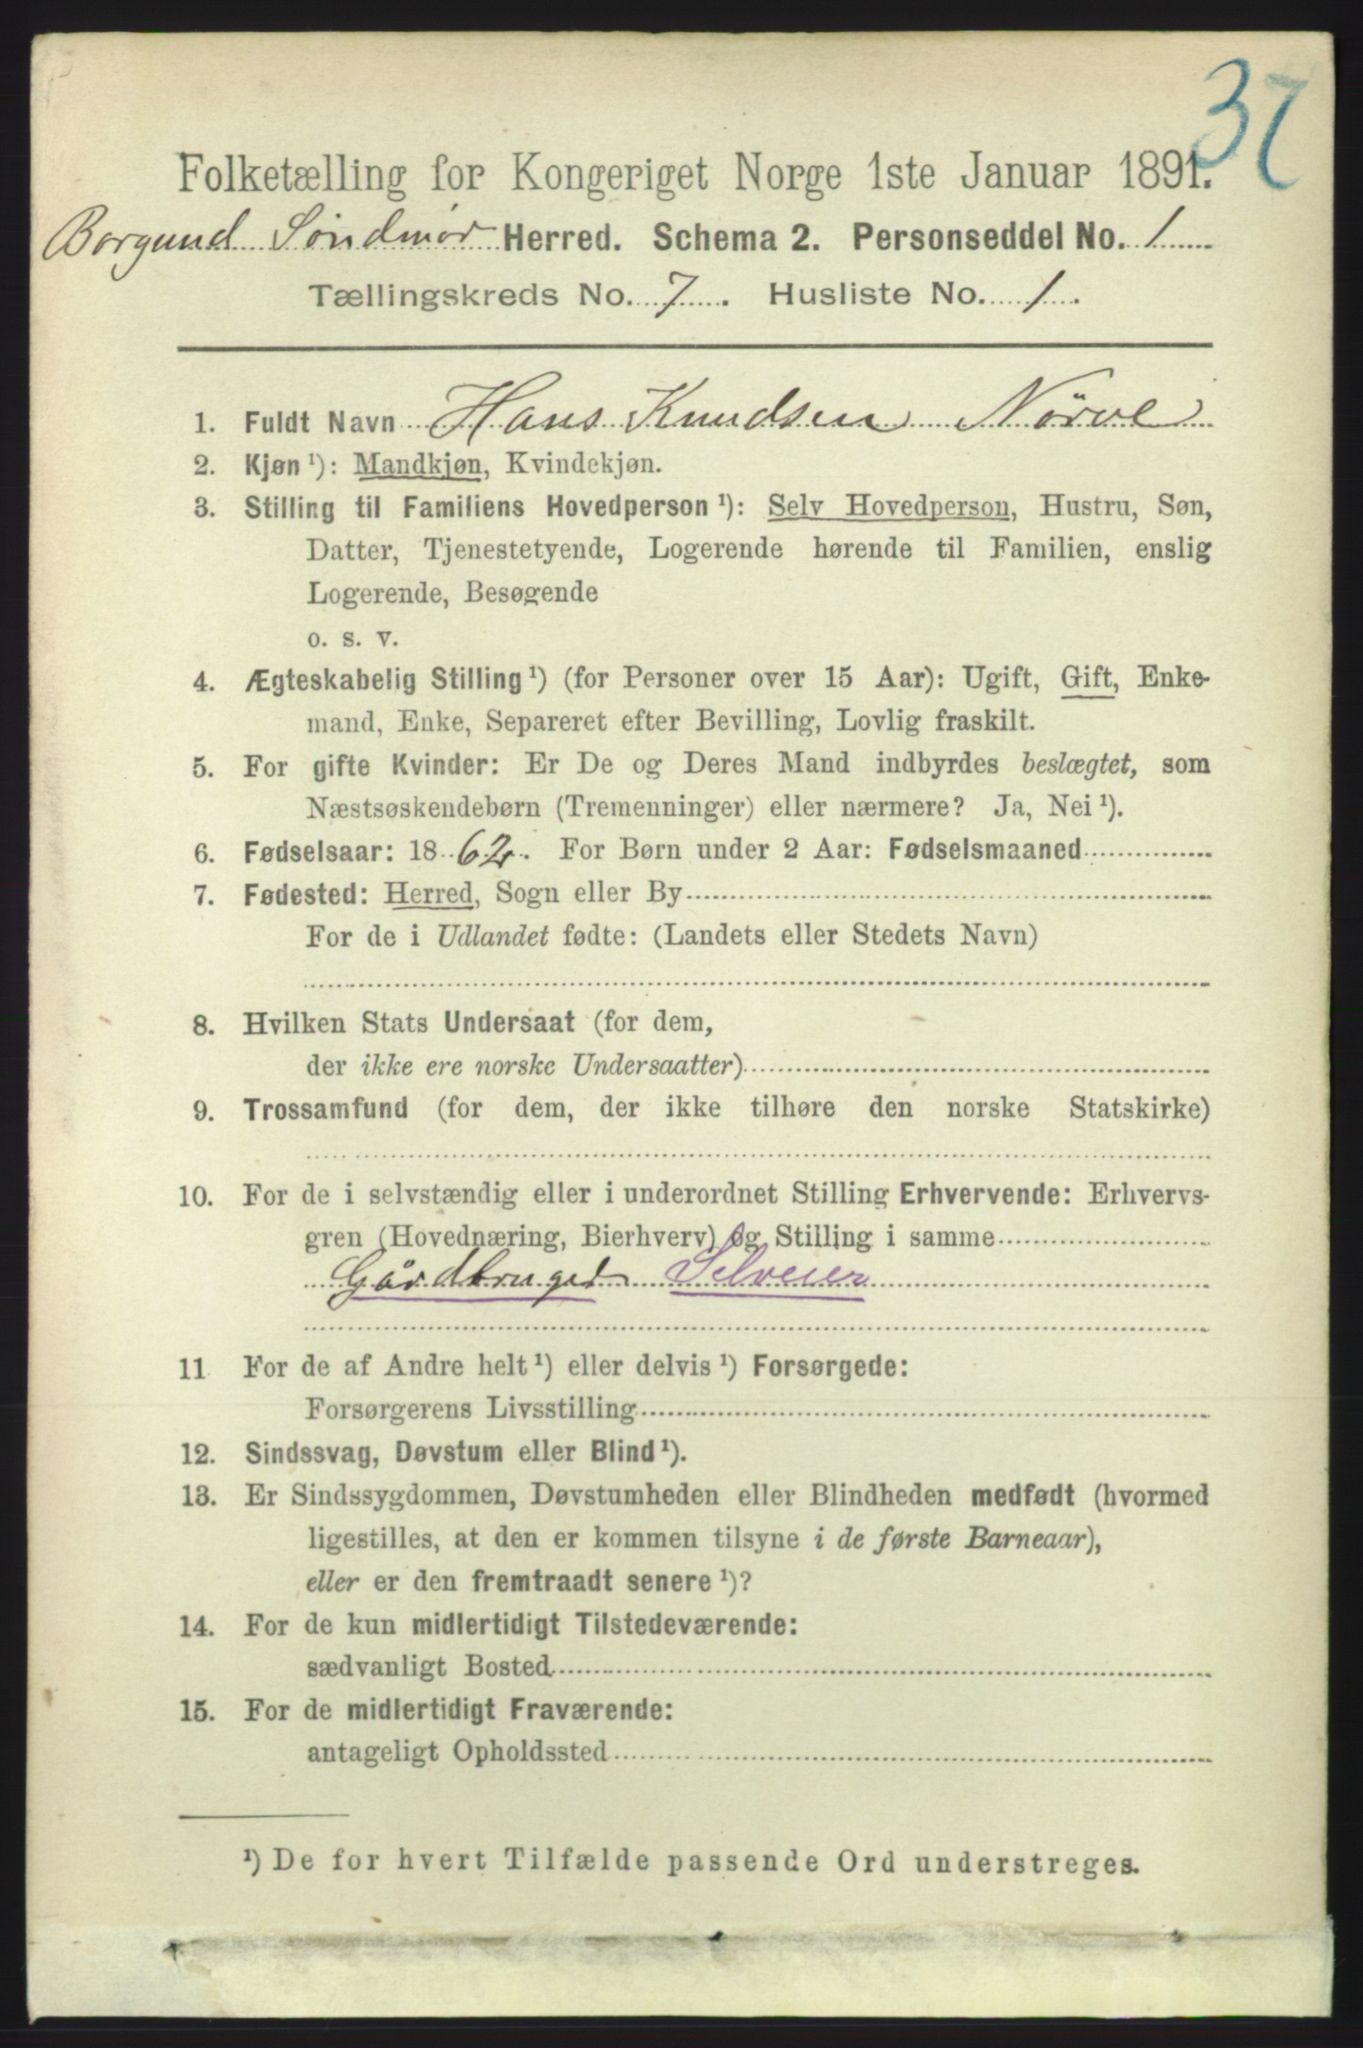 37
Folketælling for Kongeriget Norge 1ste Januar 1891.
Borgund Söndmör Herred. Schema 2. Personseddel No. 1
Tællingskreds No. 7. Husliste No. 1.
1. Fuldt Navn Hans Knudsen Nörve
2. Kjøn ¹): Mandkjøn, Kvindekjøn.
3. Stilling til Familiens Hovedperson ¹): Selv Hovedperson, Hustru, Søn,
Datter, Tjenestetyende, Logerende hørende til Familien, enslig
Logerende, Besøgende
o. s. v.
4. Ægteskabelig Stilling ¹) (for Personer over 15 Aar): Ugift, Gift, Enke-
mand, Enke, Separeret efter Bevilling, Lovlig fraskilt.
5. For gifte Kvinder: Er De og Deres Mand indbyrdes beslægtet, som
Næstsøskendebørn (Tremenninger) eller nærmere? Ja, Nei ¹).
6. Fødselsaar: 1862. For Børn under 2 Aar: Fødselsmaaned
7. Fødested: Herred, Sogn eller By
For de i Udlandet fødte: (Landets eller Stedets Navn)
8. Hvilken Stats Undersaat (for dem,
der ikke ere norske Undersaatter)
9. Trossamfund (for dem, der ikke tilhøre den norske Statskirke)
10. For de i selvstændig eller i underordnet Stilling Erhvervende: Erhvervs-
gren (Hovednæring, Bierhverv) og Stilling i samme
Gårdbruger Selveier
11 For de af Andre helt ¹) eller delvis ¹) Forsørgede:
Forsørgerens Livsstilling
12. Sindssvag, Døvstum eller Blind ¹).
13. Er Sindssygdommen, Døvstumheden eller Blindheden medfødt (hvormed
ligestilles, at den er kommen tilsyne i de første Barneaar),
eller er den fremtraadt senere ¹)?
14. For de kun midlertidigt Tilstedeværende:
sædvanligt Bosted
15. For de midlertidigt Fraværende:
antageligt Opholdssted
¹) De for hvert Tilfælde passende Ord understreges.